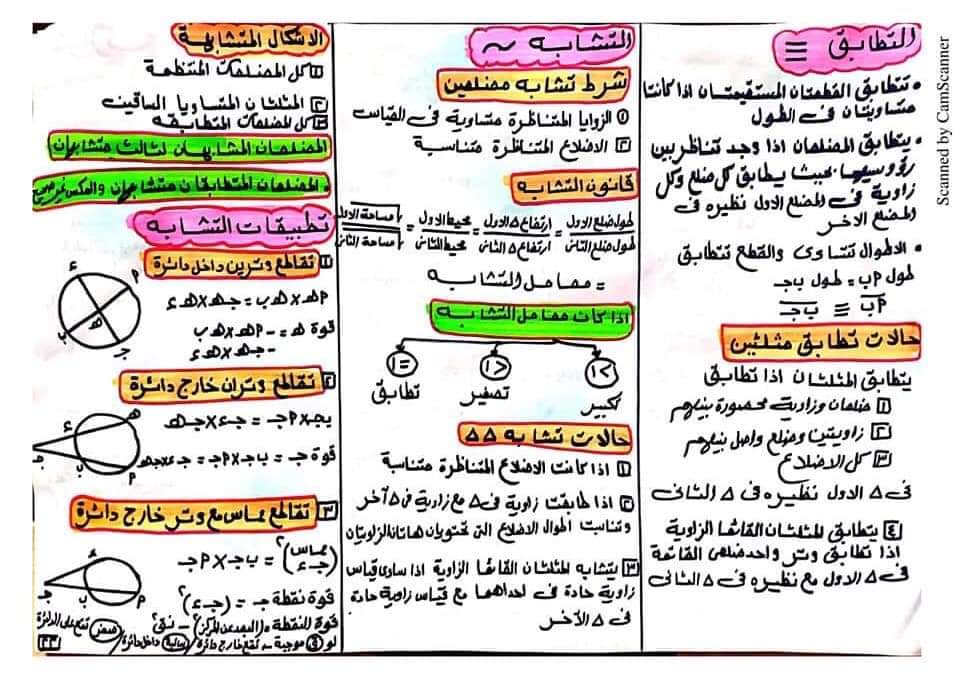 التطابق
≡
• تتطابق القطعتان المستقيمتان اذا كانتا
متساويتان فى الطول
• يتطابق المضلعان اذا وجد تناظر بين
رؤوسيهما بحيث يطابق كل ضلع وكل
زاوية فى المضلع الاول نظيره فى
المضلع الاخر
• الاطوال تتساوى والقطع تتطابق
طول ٩ب = طول ب جـ
٩ب ≡ ب جـ
حالات تطابق مثلثين
يتطابق المثلثان اذا تطابق
١ ضلعان وزاوية محصورة بينهم
٢ زاويتين وضلع واصل بينهم
٣ كل الاضلاع
فى ∆ الاول نظيره فى ∆ الثانى
٤ يتطابق المثلثان القائما الزاوية
اذا تطابق وتر واحد ضلعى القائمة
فى ∆ الاول مع نظيره فى ∆ الثانى
التشابه ~
شرط تشابه مضلعين
١ الزوايا المتناظرة متساوية فى القياس
٢ الاضلاع المتناظرة متناسبة
قانون التشابه
طول ضلع الاول / طول ضلع الثانى = ارتفاع ∆ الاول / ارتفاع ∆ الثانى = محيط الاول / محيط الثانى = √مساحة الاول / √مساحة الثانى
= معامل التشابه
اذا كان معامل التشابه
١< ١> ١=
تكبير تصغير تطابق
حالات تشابه ∆∆
١ اذا كانت الاضلاع المتناظرة متناسبة
٢ اذا طابقت زاوية فى ∆ مع زاوية فى ∆ آخر
وتناسبت اطوال الاضلاع التى تحتويان هاتانة الزاويتان
٣ يتشابه المثلثان القائما الزاوية اذا ساوى قياس
زاوية حادة فى احداهما مع قياس زاوية حادة
فى ∆ الآخر
الاشكال المتشابهة
١ كل المضلعات المنتظمة
٢ المثلثان المتساويا الساقين
٣ كل المضلعات المتطابقة
المضلعان المشابهان لثالث متشابهان
• المضلعان المتطابقان متشابهان والعكس غير صحيح
تطبيقات التشابه
١ تقاطع وترين داخل دائرة
٩هـ × هـ ب = جـ هـ × هـ ء
قوة هـ = - ٩هـ × هـ ب
- جـ هـ × هـ ء
ء ٩ هـ ب جـ
٢ تقاطع وتران خارج دائرة
ب جـ × ٩جـ = جـ ء × جـ هـ
قوة جـ = ب جـ × ٩جـ = جـ ء × جـ هـ
هـ ء جـ ب ٩
٣ تقاطع مماس مع وتر خارج دائرة
(مماس جـ ء)٢ = ب جـ × ٩جـ
قوة نقطة جـ = (جـ ء)٢
ء جـ ب ٩
قوة النقطة = (البعد عن المركز)٢ - نق٢
لو موجبة ← تقع خارج دائرة / سالبة داخل دائرة / صفر تقع على الدائرة
٢٣
Scanned by CamScanner